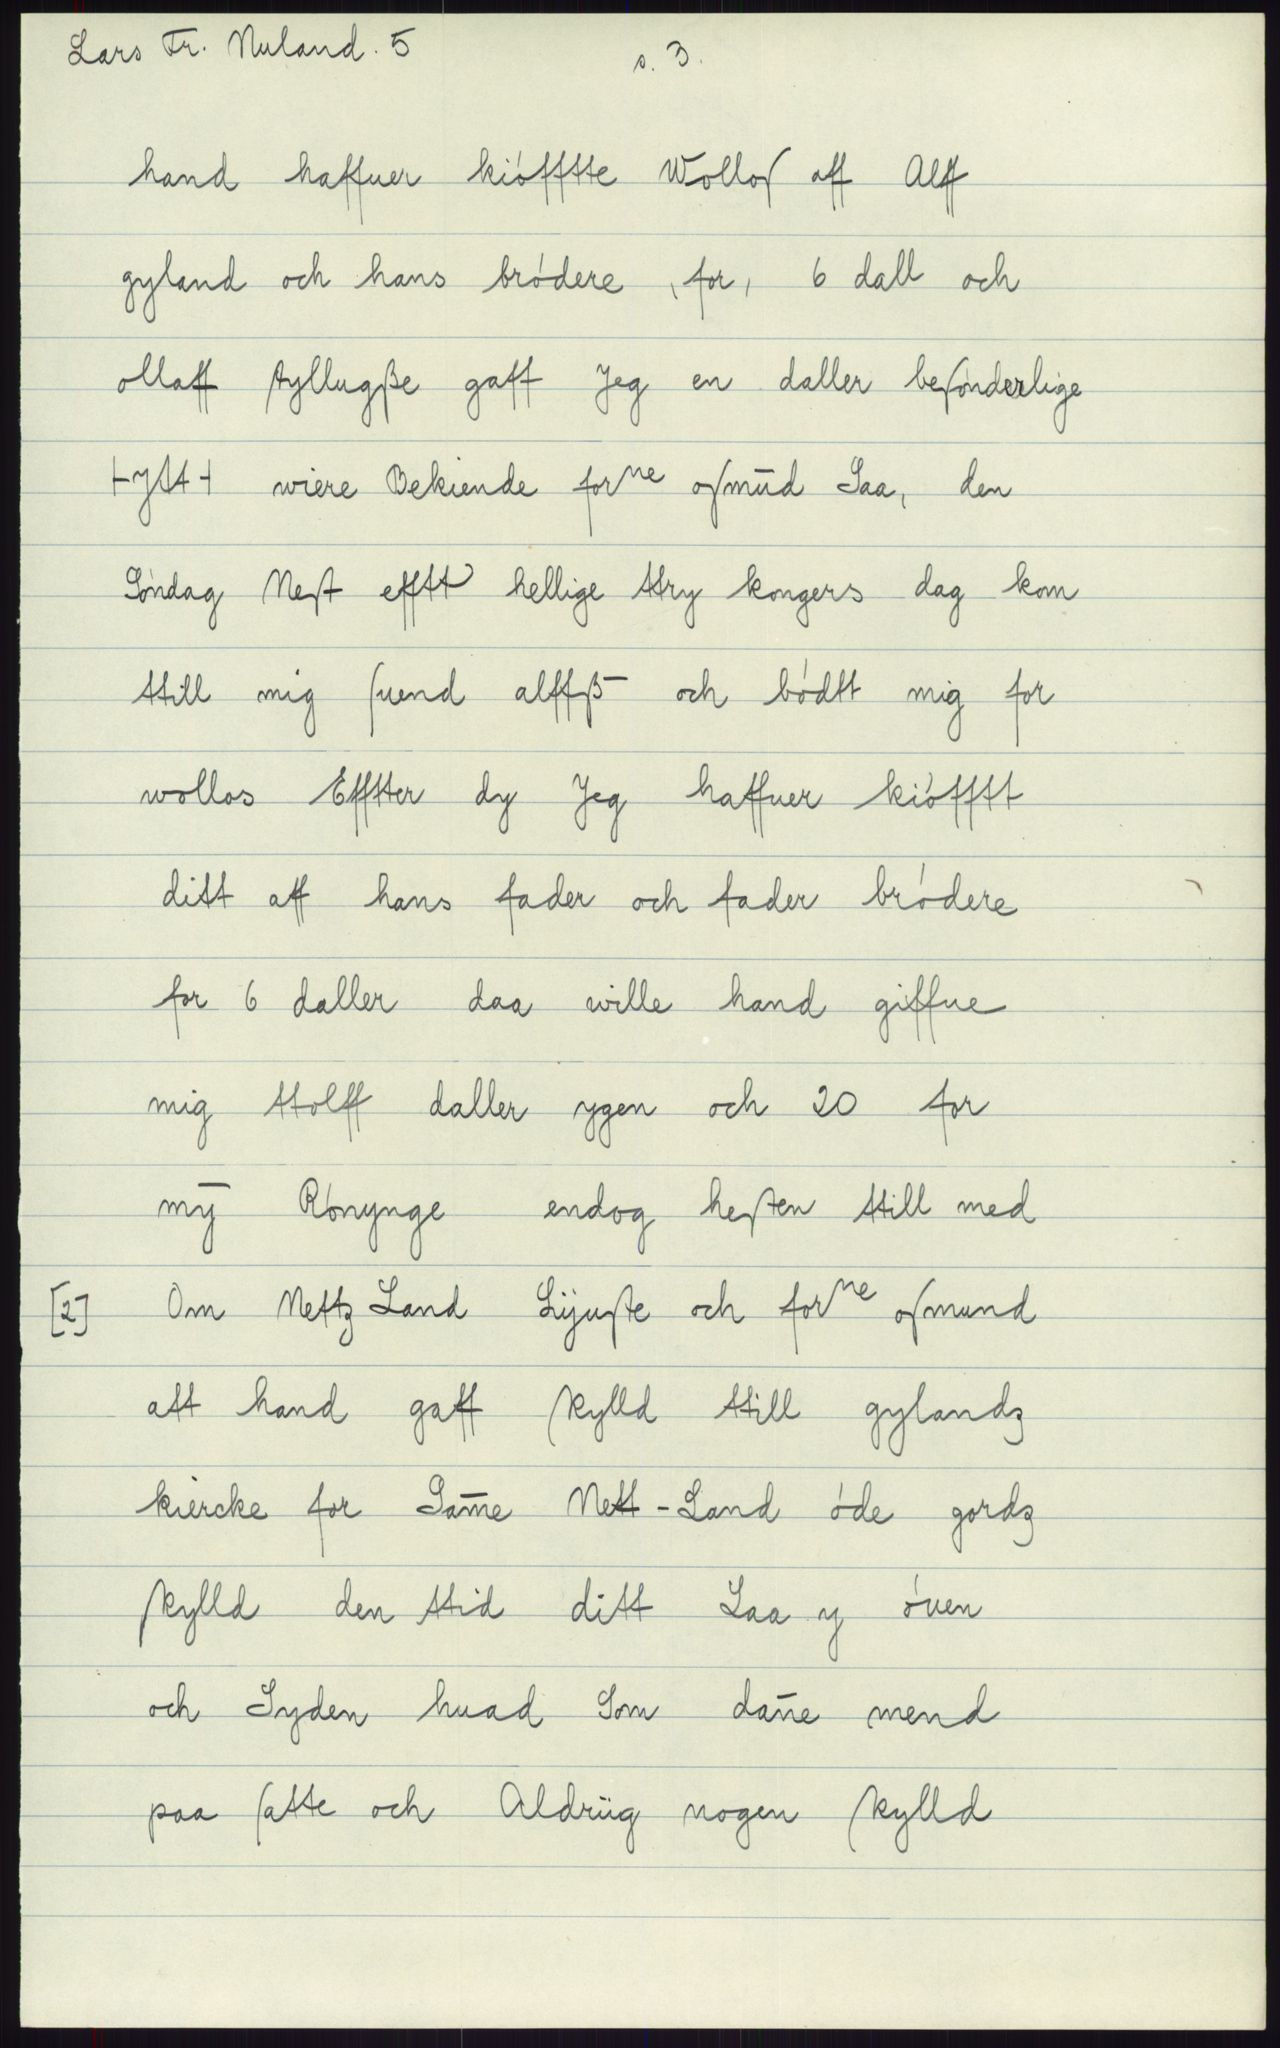 Lars Fr. Nuland. 5
s. 3.
hand haffuer kiófftte Wolloſ aff Alff
gyland och hans bródere, for, 6 dall och
ollaff tyllugße gaff Jeg en daller beſónderlige
wiere Bekiende forne oſmūd Saa, den
Sóndag Neſt efftt hellige ttry kongers dag kom
ttill mig ſuend alffß och bódtt mig for
wollos Effter dy Jeg haffuer kiófftt
ditt aff hans fader och fader bródere
for 6 daller daa wille hand giffue
mig ttolff daller ygen och 20 for
mȳ Rónynge endog heſten ttill med
[2] Om Nettz Land Lÿuſte och forne oſmund
att hand gaff ſkylld ttill gylandz
kiercke for Sam̄e Nett-Land óde gordz
ſkylld den ttid ditt Laa y óuen
och Syden huad Som dan̄e mend
paa ſatte och Aldriig nogen ſkylld